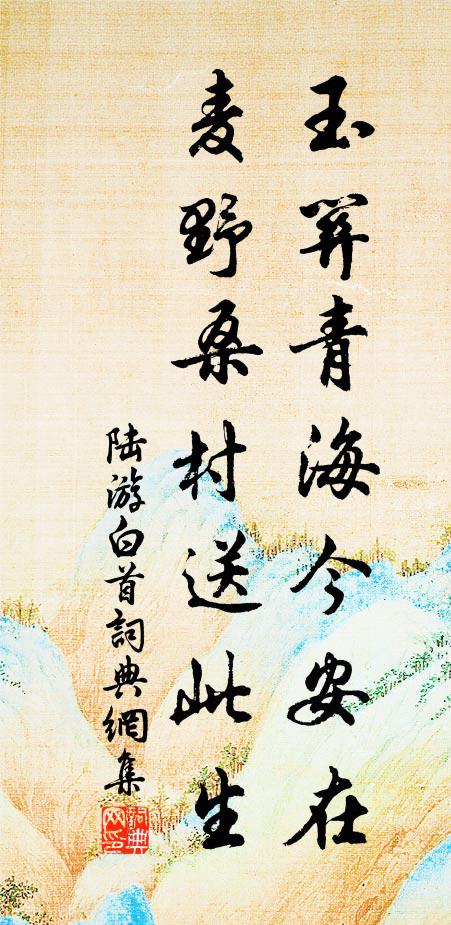 玉關青海今安在
麦野桑村送此生
陆游白首詞典網集
詞典
网印